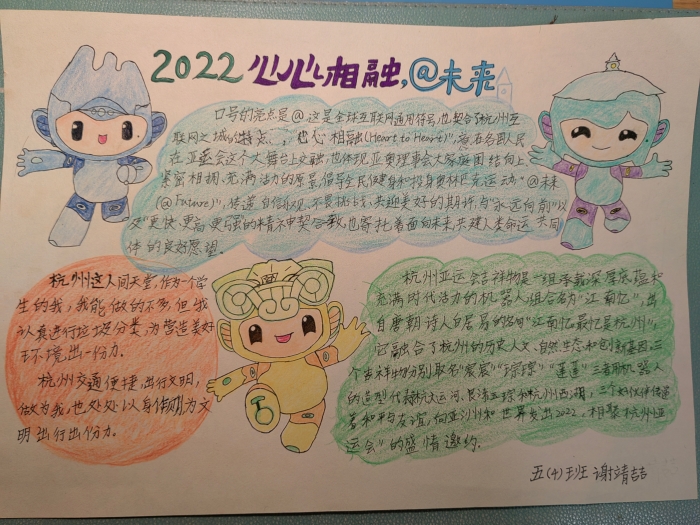 2022心心相融,@未来
口号的亮点是@,这是全球互联网通用符号,也契合了杭州互
联网之城的特点。"心心相融(Heart to Heart)",意在各国人民
在亚运会这个大舞台上交融,也体现亚奥理事会大家庭团结向上
紧密相拥、充满活力的愿景,倡导全民健身和投身奥林匹克运动。"@未来
(@Future)",传递自信乐观、不畏挑战、共迎美好的期许,与"永远向前"以
及"更快、更高、更强的精神契合一致,也寄托着面向未来、共建人类命运共同
体的良好愿望。
杭州这人间天堂,作为一个学
生的我,我能做的不多,但我
认真进行垃圾分类,为营造美好
环境出一份力。
杭州交通便捷出行文明,
做为我,也处处以身作则为文
明出行出份力。
杭州亚运会吉祥物是一组承载深厚底蕴和
充满时代活力的机器人,组合名为"江南忆",出
自唐朝诗人白居易的名句"江南忆,最忆是杭州",
它融合了杭州的历史人文、自然生态和创新基因。三
个吉祥物分别取名"宸宸""琮琮""莲莲"三者都以机器人
的造型代表杭大运河、良渚玉琮和杭州西湖,三个好伙伴传递
着和平与友谊,向亚洲和世界发出2022,相聚杭州亚
运会"的盛情邀约.
五(4)班 谢靖喆